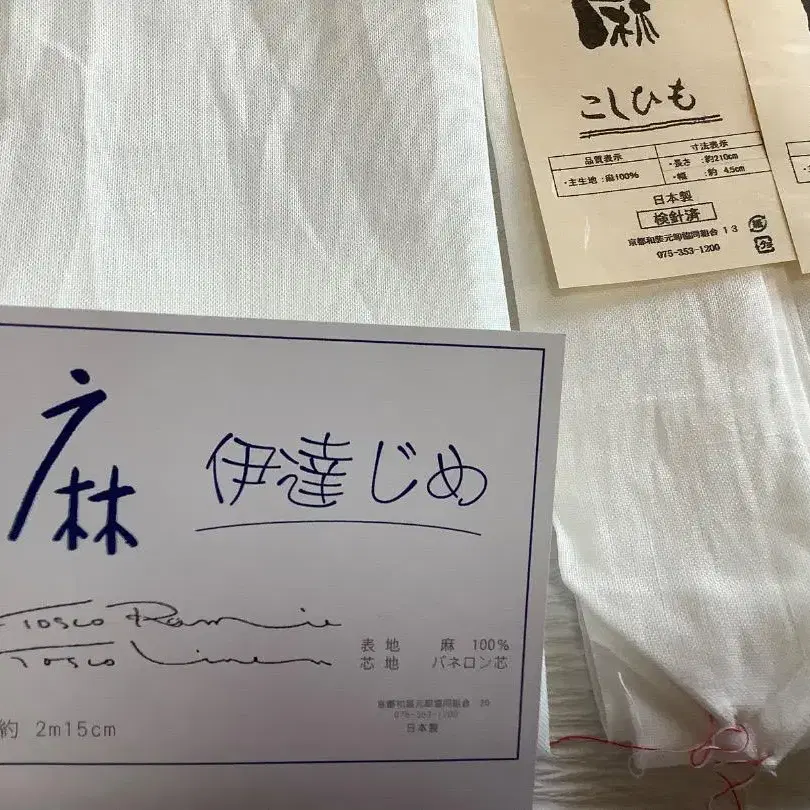 麻
こしひも
品質表示
寸法表示
・主生地 : 麻100%
・長さ : 約210cm
・幅 : 約 4.5cm
日本製
検針済
京都和装元卸協同組合 13
075-353-1200
麻 伊達じめ
Tosco Ramie
Tosco Linen
表地 麻 100%
芯地 バネロン芯
約 2m15cm
京都和装元卸協同組合 20
075-353-1200
日本製